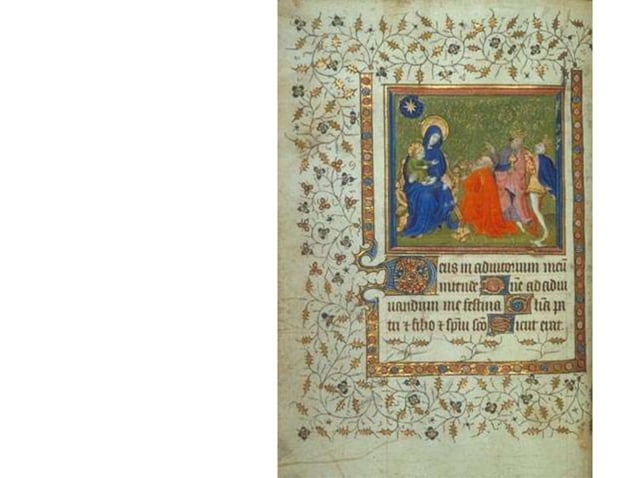 Deus in adiutorium meū
intende Dn̄e ad adiu
uandum me festina Glīa pa
tri ⁊ filio ⁊ sp̄iu sc̄o Sicut erat